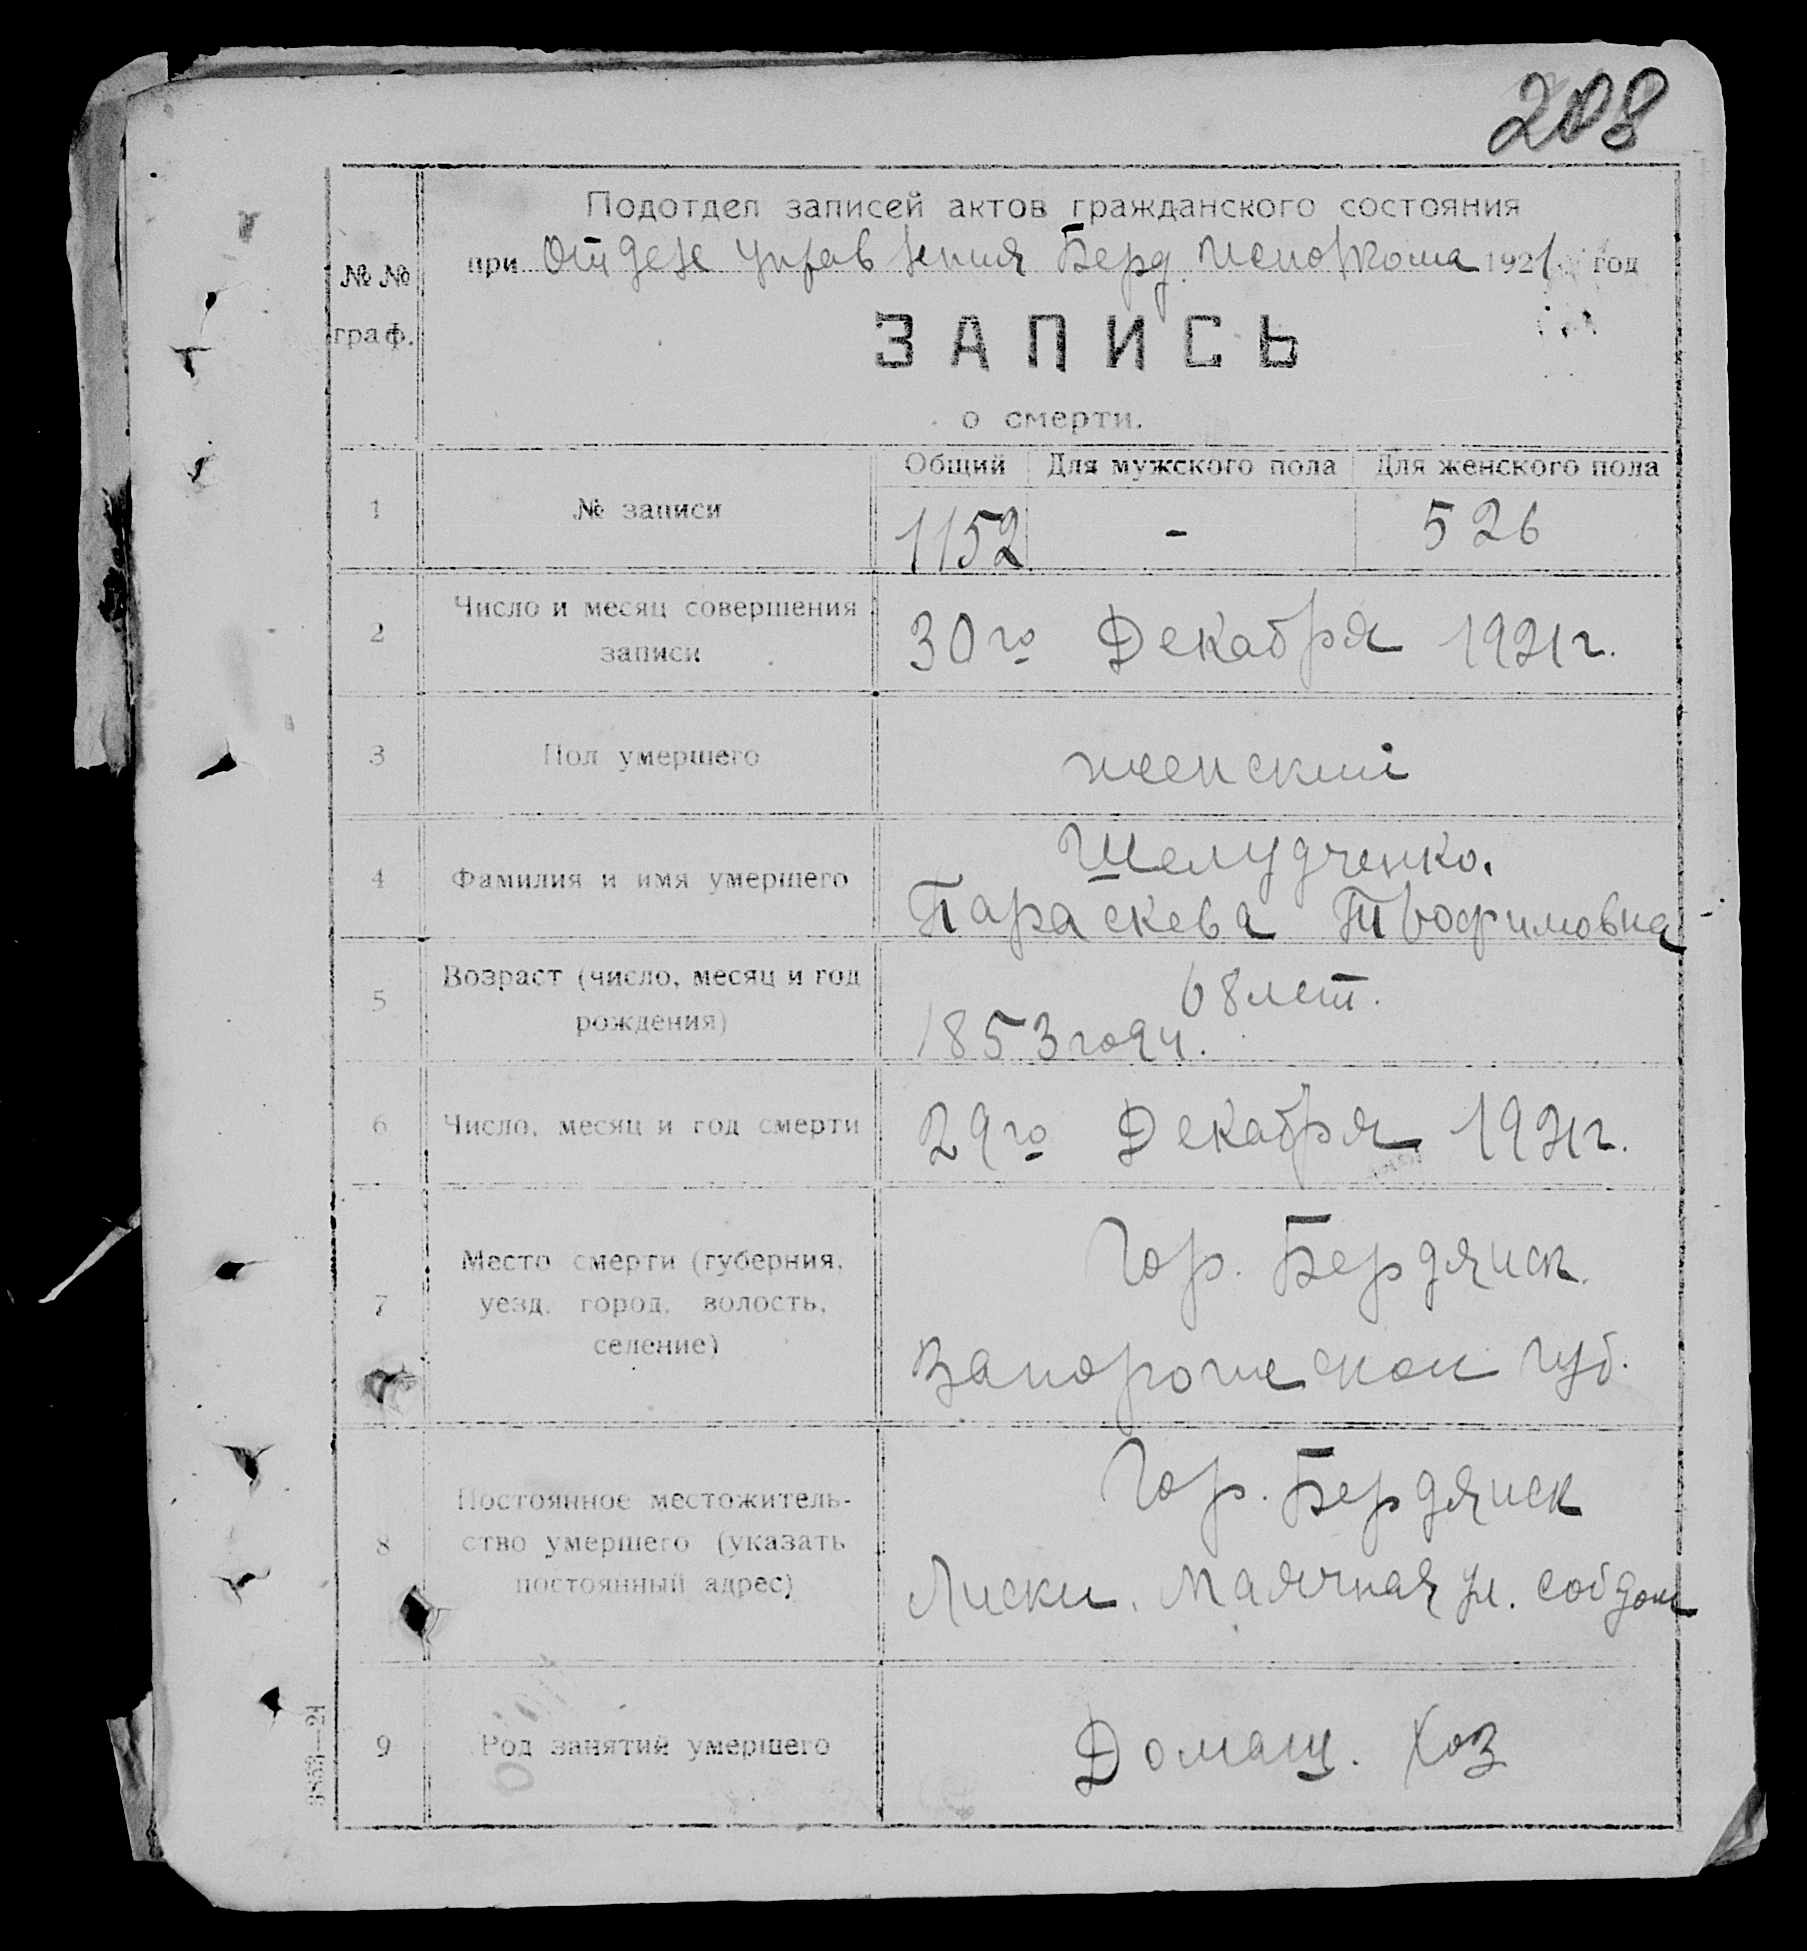 208
Подотдел записей актов гражданского состояния
при Отделе Управления Берд. Исполкома 1921 год
№№
граф.
ЗАПИСЬ
о смерти.
Общий Для мужского пола Для женского пола
1 № записи 1152 - 526
2 Число и месяц совершения
записи
30го Декабря 1921г.
3 Пол умершего женский
4 Фамилия и имя умершего
Шелудченко.
Параскева Трофимовна
5 Возраст (число, месяц и год
рождения)
68 лет.
1853 году.
6 Число, месяц и год смерти 29го Декабря 1921г.
7 Место смерти (губерния,
уезд, город, волость,
селение)
Гор. Бердянск.
Запорожской губ.
8 Постоянное местожитель-
ство умершего (указать
постоянный адрес)
Гор. Бердянск
Лиски. Маячная ул. соб дом
9 Род занятий умершего Домаш. Хоз
3853—21